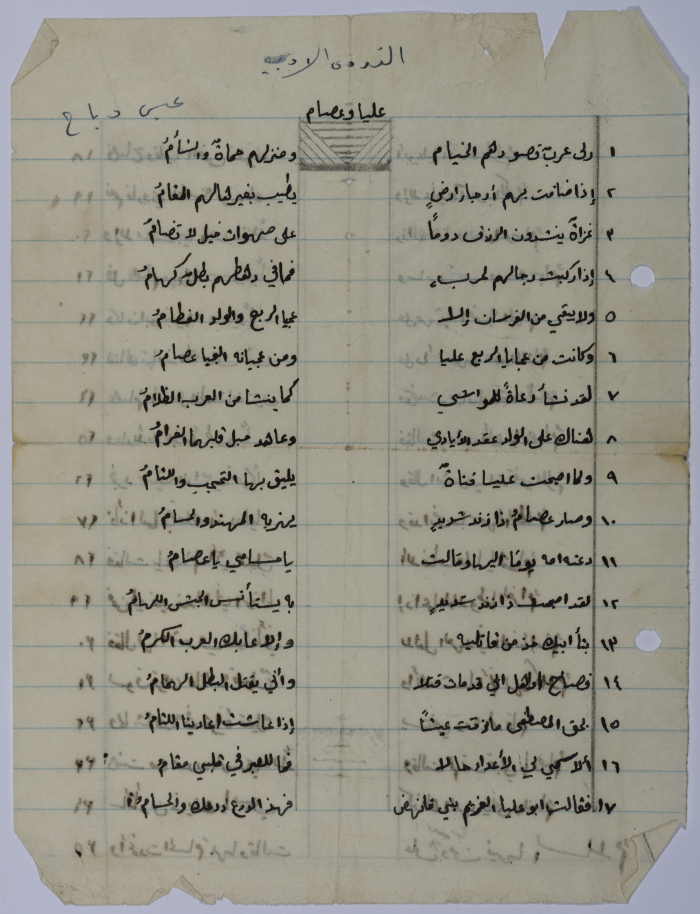 الندوة الادبية
عيسى دباح
عليا وعصام
١ رلى عرب قصورهم الخيام ومنزلهم حماةٌ والشأمُ
٢ إذا ضاقت بهم أرجاء ارضٍ يطيب بغيرها لهم المقامُ
٣ غزاةٌ ينشدون الرزق دوماً على صهوات خيل لا تضامُ
٤ إذا ركبت رجالهم لحربٍ فما في رهطهم بطل كهامُ
٥ ولا يبقي من الفرسان إلا عجايا الربع والولد الفطامُ
٦ وكانت من عجايا الربع عليا ومن عجيانه ايضا عصامُ
٧ لقد نشأ رعاةً للمواشي كما ينشا من العرب الغلامُ
٨ هناك على الولا عقد الأيادي وعاهد حبل قلبهما الغرامُ
٩ ولما اصبحت عليا فتاةً يليق بها التحجب واللثامُ
١٠ وصار عصامُ اذا زند شديدٍ يهزبه المهند والحسامُ
١١ دعته امه يوماً اليها وقالت يا عصامُ
١٢ لقد اصبحت ذا زند شديدٍ به يستأنس الجيش اللهامُ
١٣ بثأ ابيك خذ من قاتليه وإلا عابك العرب الكرمُ
١٤ فصاح اوالي قد مات قتلا وأنى يقتل البطل الهمامُ
١٥ بحق المصطفى ما ذقت عيشاً إذا عاشت اعادينا اللئامُ
١٦ ألا سمي لي الأعداء حالا فما للصبر في قلبي مقامُ
١٧ فقالت ابو عليا الغريم بني فانهض فهذي الدرع دونك والحسامُ